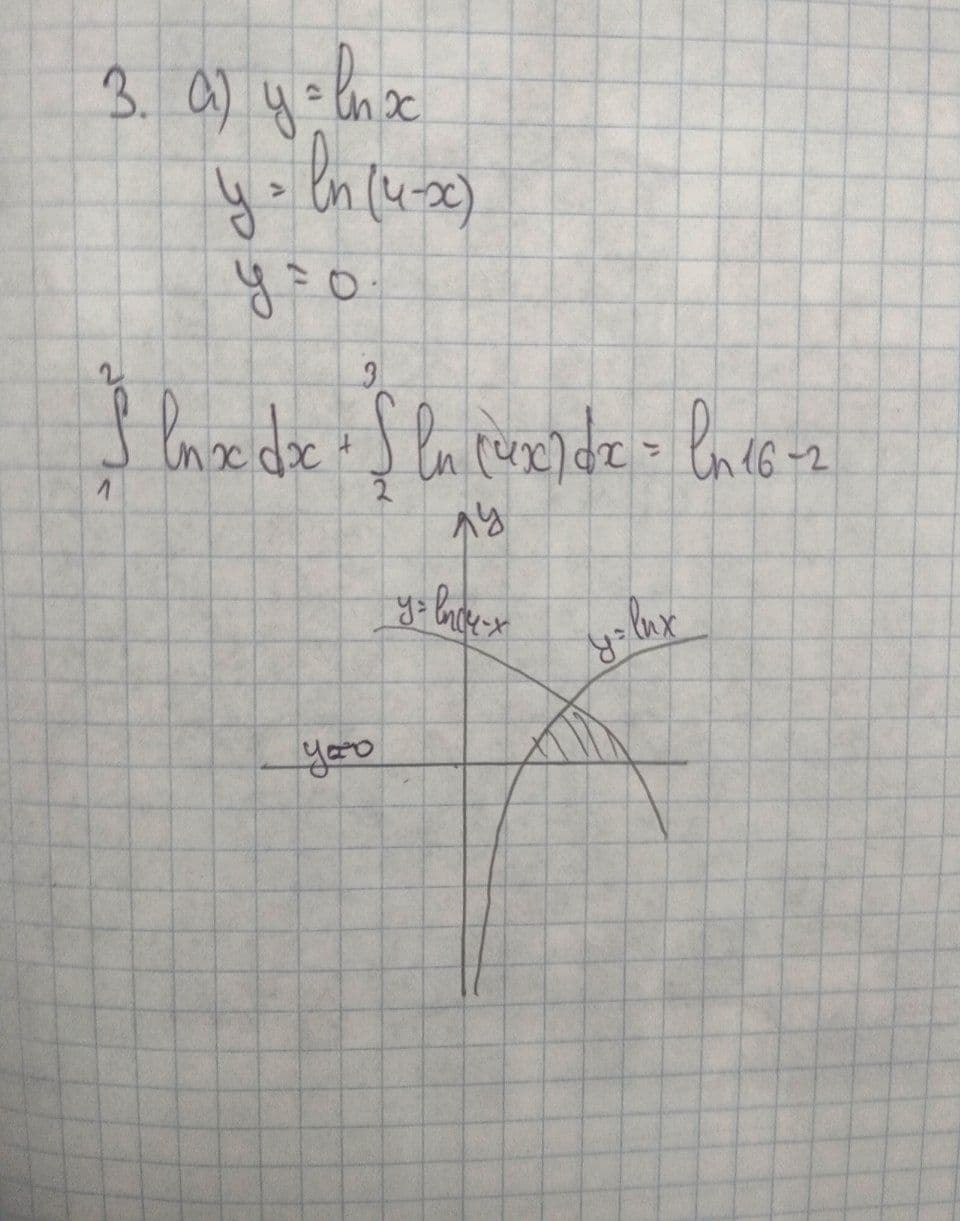 3. a) y = ln x
y = ln (4-x)
y = 0.
2 3
∫ ln x dx + ∫ ln (4x) dx = ln 16 - 2
1 2
y
y = ln(4-x
y = ln x
y = 0